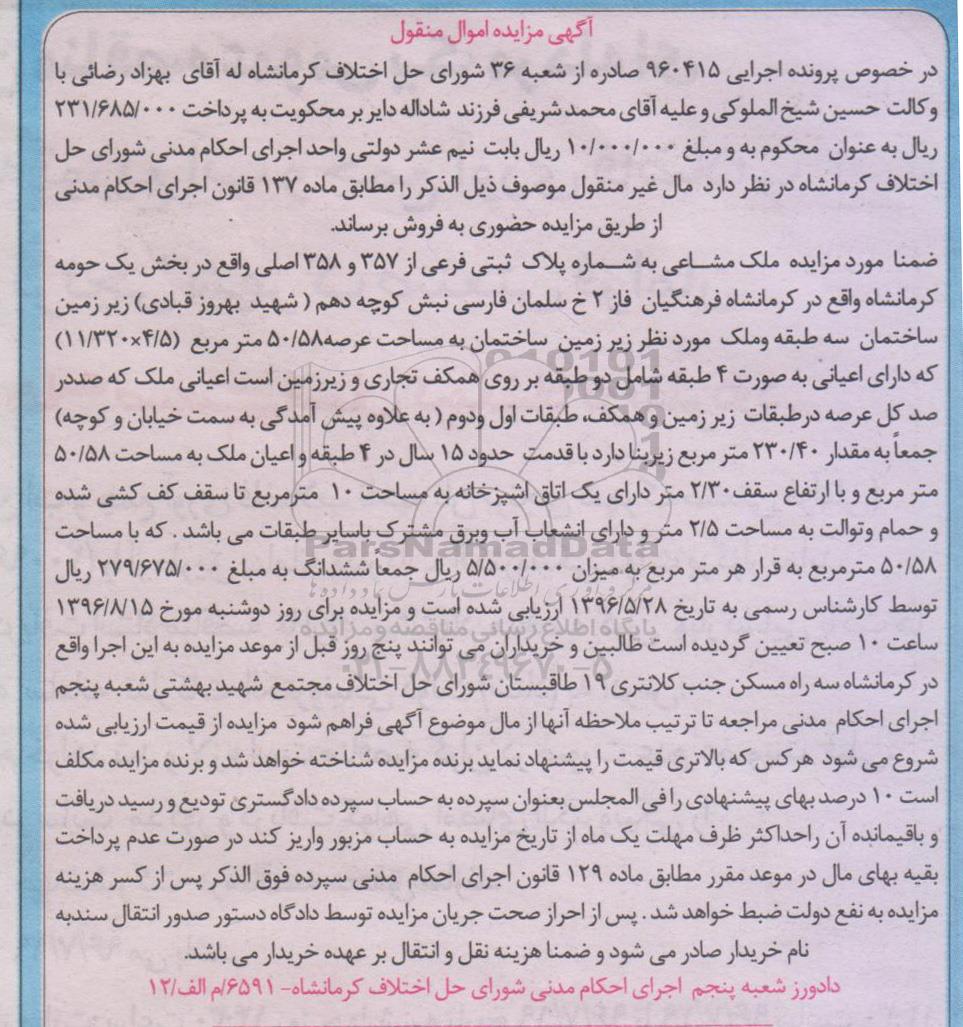 آگهی مزایده اموال منقول
در خصوص پرونده اجرایی ۹۶۰۴۱۵ صادره از شعبه ۳۶ شورای حل اختلاف کرمانشاه له آقای بهزاد رضائی با
وکالت حسین شیخ الملوکی و علیه آقای محمد شریفی فرزند شاداله دایر بر محکویت به پرداخت ۲۳۱/۶۸۵/۰۰۰
ریال به عنوان محکوم به و مبلغ ۱۰/۰۰۰/۰۰۰ ریال بابت نیم عشر دولتی واحد اجرای احکام مدنی شورای حل
اختلاف کرمانشاه در نظر دارد مال غیر منقول موصوف ذیل الذکر را مطابق ماده ۱۳۷ قانون اجرای احکام مدنی
از طریق مزایده حضوری به فروش برساند.
ضمنا مورد مزایده ملک مشاعی به شماره پلاک ثبتی فرعی از ۳۵۷ و ۳۵۸ اصلی واقع در بخش یک حومه
کرمانشاه واقع در کرمانشاه فرهنگیان فاز ۲ خ سلمان فارسی نبش کوچه دهم ( شهید بهروز قبادی) زیر زمین
ساختمان سه طبقه وملک مورد نظر زیر زمین ساختمان به مساحت عرصه۵۰/۵۸ متر مربع (۴/۵×۱۱/۳۲۰)
که دارای اعیانی به صورت ۴ طبقه شامل دو طبقه بر روی همکف تجاری و زیرزمین است اعیانی ملک که صددر
صد کل عرصه درطبقات زیر زمین و همکف، طبقات اول ودوم ( به علاوه پیش آمدگی به سمت خیابان و کوچه)
جمعاً به مقدار ۲۳۰/۴۰ متر مربع زیربنا دارد با قدمت حدود ۱۵ سال در ۴ طبقه و اعیان ملک به مساحت ۵۰/۵۸
متر مربع و با ارتفاع سقف۲/۳۰ متر دارای یک اتاق اشپزخانه به مساحت ۱۰ مترمربع تا سقف کف کشی شده
و حمام وتوالت به مساحت ۲/۵ متر و دارای انشعاب آب وبرق مشترک باسایر طبقات می باشد . که با مساحت
۵۰/۵۸ مترمربع به قرار هر متر مربع به میزان ۵/۵۰۰/۰۰۰ ریال جمعاً ششدانگ به مبلغ ۲۷۹/۶۷۵/۰۰۰ ریال
توسط کارشناس رسمی به تاریخ ۱۳۹۶/۵/۲۸ ارزیابی شده است و مزایده برای روز دوشنبه مورخ ۱۳۹۶/۸/۱۵
ساعت ۱۰ صبح تعیین گردیده است طالبین و خریداران می توانند پنج روز قبل از موعد مزایده به این اجرا واقع
در کرمانشاه سه راه مسکن جنب کلانتری ۱۹ طاقبستان شورای حل اختلاف مجتمع شهید بهشتی شعبه پنجم
اجرای احکام مدنی مراجعه تا ترتیب ملاحظه آنها از مال موضوع آگهی فراهم شود مزایده از قیمت ارزیابی شده
شروع می شود هرکس که بالاتری قیمت را پیشنهاد نماید برنده مزایده شناخته خواهد شد و برنده مزایده مکلف
است ۱۰ درصد بهای پیشنهادی را فی المجلس بعنوان سپرده به حساب سپرده دادگستری تودیع و رسید دریافت
و باقیمانده آن راحداکثر ظرف مهلت یک ماه از تاریخ مزایده به حساب مزبور واریز کند در صورت عدم پرداخت
بقیه بهای مال در موعد مقرر مطابق ماده ۱۲۹ قانون اجرای احکام مدنی سپرده فوق الذکر پس از کسر هزینه
مزایده به نفع دولت ضبط خواهد شد . پس از احراز صحت جریان مزایده توسط دادگاه دستور صدور انتقال سندبه
نام خریدار صادر می شود و ضمنا هزینه نقل و انتقال بر عهده خریدار می باشد.
دادورز شعبه پنجم اجرای احکام مدنی شورای حل اختلاف کرمانشاه- ۶۵۹۱/م الف/۱۲
ParsNamadData
پایگاه اطلاع رسانی مناقصه ومزایده
۰۲۱-۸۸۳۴۹۶۷۰-۵